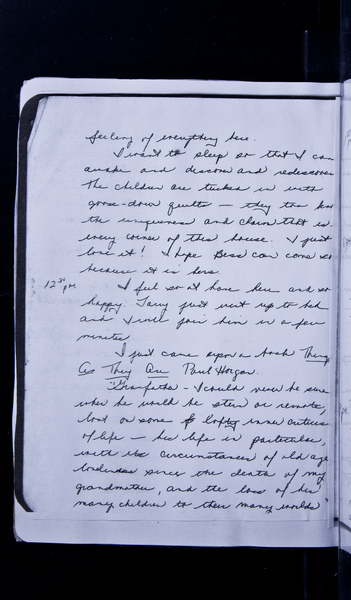 feeling of everything here.
I want to sleep so that I can
awake and discover and rediscover
The children are tucked in with
goose-down quilts — they too
the uniqueness and charm that is
every corner of this house. I just
love it! I hope Bess can come
because it is hers.
12 30 pm I feel so at home here and so
happy. Larry just went up to bed
and I will join him in a few
minutes.
I just came upon a book Things
As They Are Paul Horgan.
"Grandfather - I could never be sure
when he would be stern or remote,
lost on some lofty inner
of life — his life in particular,
with its circumstances of old age
loneliness since the death of my
grandmother, and the loss of his
many children to their many worlds"